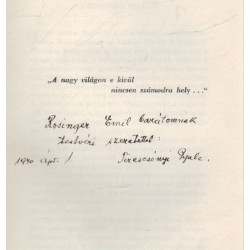 „A nagy világon e kívül
nincsen számodra hely . . .”
Rosinger Emil barátomnak
testvéri szeretettel:
1940 szept. 1
Gyula.